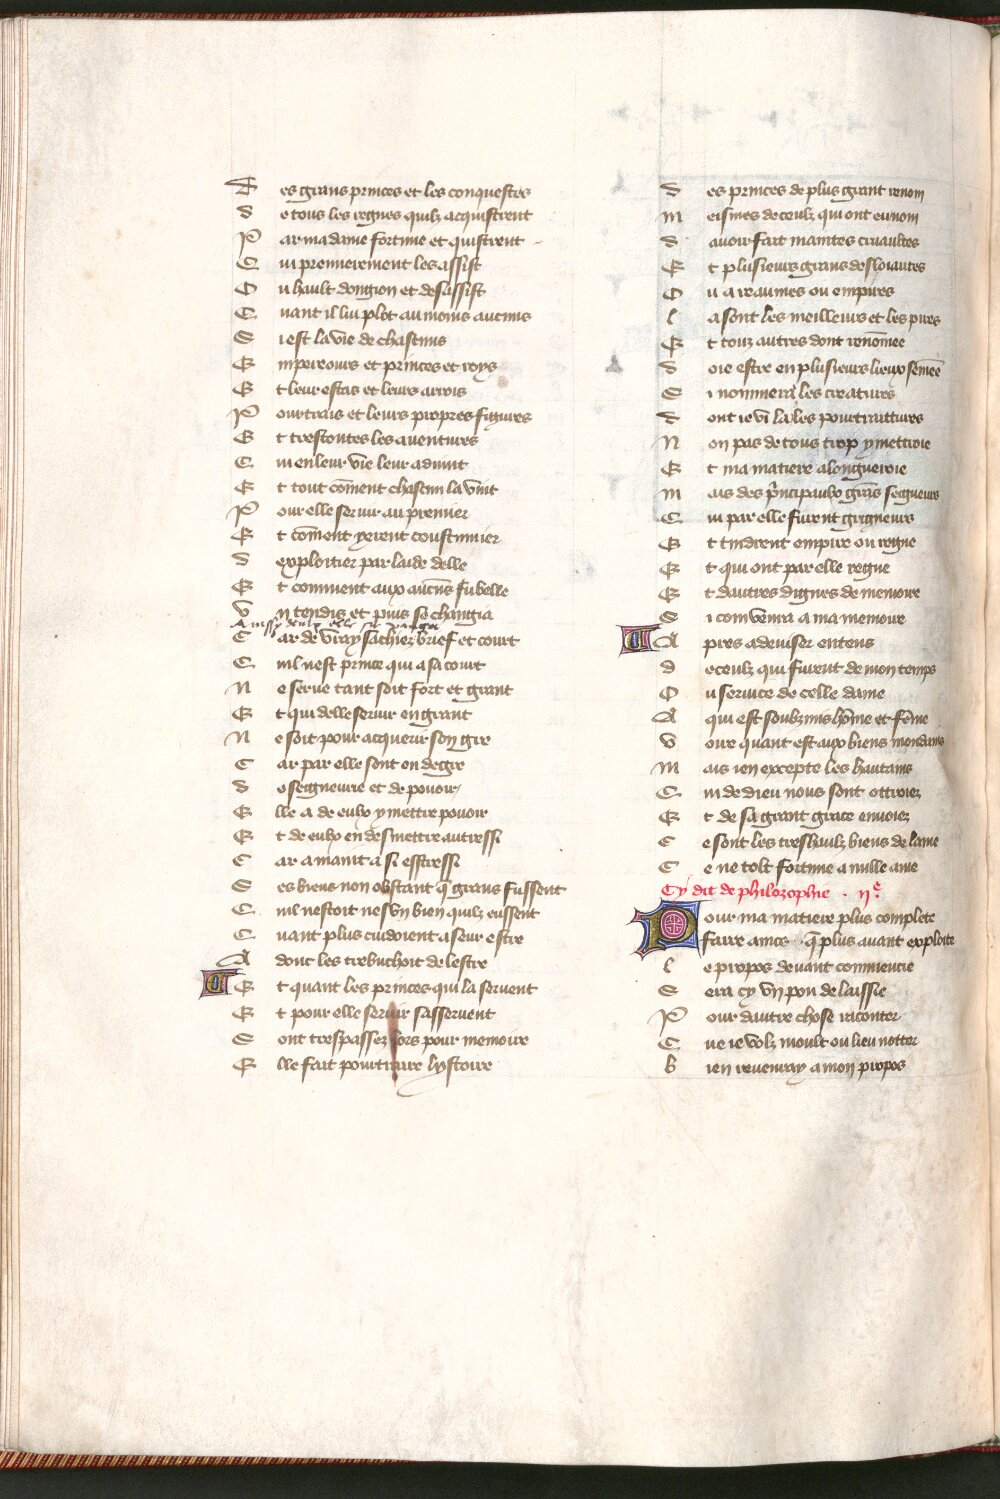 Des grans princes et les conquestes
de tous les regnes quilz acquistrent
Par ma dame fortune et quistrent
Qui premierement les assist
Ou hault dongion et desassist
Quant il lui plot au moins aucuns
Si est la vie de chascuns
Empereours et princes et roys
Et leur estas et leurs arrois
Pourtrais et leurs propres figures
Et trestoutes les auentures
Qui en leur vie leur aduint
Et tout cōment chascun la vint
Pour elle seruir au premier
Et cōment yerent coustumier
dexploitier par laide delle
Et comment aux aucūs fu belle
Vn tendis et puis se changia
Aussy deulx elle se
Car de vray sachiez brief et court
Quil nest prince qui a sa court
Ne serue tant soit fort et grant
Et qui delle seruir engrant
Ne soit pour acquerir son gre
Car par elle sont en degre
de seigneurie et de pouoir
Elle a de eulx y mettre pouoir
Et de eulx en desmettre autressi
Car a maint a si esstressi
Ses biens non obstant q̄ grans fussent
Quil nestoit nes vn bien quilz eussent
Quant plus cuidoient asseur estre
Adonc les trebuchoit de lestre
Et quant les princes qui la seruent
Et pour elle seruir sasseruent
Sont trespassez lors pour memoire
Elle fait pourtraire lystoire
des princes de plus grant renom
meismes de ceulz qui ont eu nom
dauoir fait maintes cruaultes
Et plusieurs grans desloiautes
Ou a reaumes ou empires
la sont les meilleurs et les pires
Et touz autres dont renōmee
doie estre en plusieurs lieux semee
Si nommera les creatures
dont ie vi la les pourtraittures
Non pas de tous trop y mettroie
Et ma matiere alongueroie
mais des p̄ncipaulx grās seigneurs
Qui par elle furent greigneurs
Et tindrent empire ou regne
Et qui ont par elle regne
Et dautres dignes de memoire
Si com venra a ma memoire
Apres a deuiser entens
de ceulz qui furent de mon temps
Ou seruice de celle dame
A qui est soubzmis hōme et fēme
voire quant est aux biens mondains
mais ien excepte les haultains
Qui de dieu nous sont ottroiez
Et de sa grant grace enuoiez
Ce sont les treshaulz biens de lame
Ce ne tolt fortune a nulle ame
Cy dit de philozophie . ii.ͤ
Pour ma matiere plus complete
faire aincois q̄ plus auant exploite
le propos deuant commencie
Sera cy vn pou delaissie
Pour dautre chose raconter
Que ie volz moult ou lieu notter
bien reuenray a mon propos